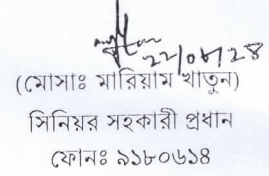 ২২/০৮/২৪
(মোসাঃ মারিয়াম খাতুন)
সিনিয়র সহকারী প্রধান
ফোনঃ ৯১৮০৬১৪